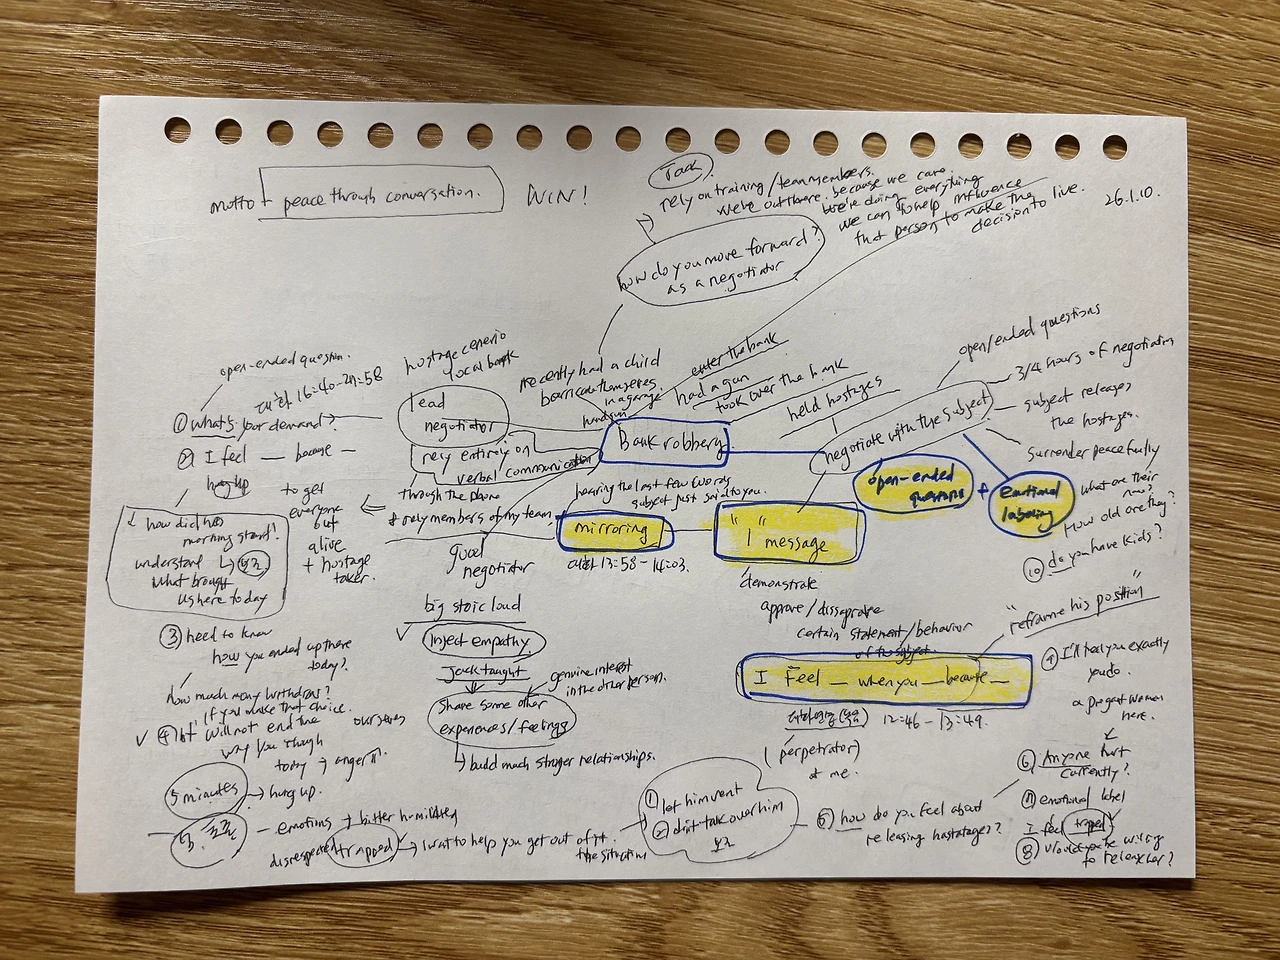 motto peace through conversation.
WIN!
26.1.10.
Jack
rely on training/teammembers.
We're out there because we care.
We're doing everything
we can to help influence
that person to make the
decision to live.
how do you move forward?
as a negotiator
recently had a child
barricade themselves
in a garage
handgun
enter the bank
had a gun
took over the bank
held hostages
Bank robbery
negotiate with the subject
open/ended questions
3/4 hours of negotiation
subject releases
the hostages.
surrender peacefully
open-ended
questions
+
emotional
labeling
hostage
local bank
lead
negotiator
rely entirely on
verbal communication
through the phone
* only members of my team
to get
everyone
out
alive
+ hostage
taker.
open-ended question.
① What's your demand?
② I feel — because —
hung up
how did his
morning start?
understand
What brought
us here today
③ need to know
how you ended up there
today?
how much money withdraw?
if you make that choice.
④ It will not end the
why you though
today → anger
ourselves
5 minutes → hung up.
- emotions → bitter humiliated
disrespected trapped → I want to help you get out of it.
the situation
good
negotiator
big stoic loud
✓ Inject empathy
Jack taught
genuine interest
in the other person.
Share some other
experiences/feelings
↳ build much stronger relationships.
hearing the last few words
subject just said to you.
mirroring
13:58-14:03.
"I"
message
demonstrate
approve/disapprove
certain statement/behavior
of the subject.
I Feel — when you — because —
12:46-13:49.
(perpetrator)
at me.
"reframe his position"
① let him vent
② don't talk over him
⑤ how do you feel about
releasing hostages?
⑥ Anyone hurt
currently?
⑦ emotional label
I feel trapped
⑧ Would you be willing
to release her?
⑨ I'll treat you exactly
a pregnant woman
here.
What are their
How old are they?
⑩ do you have kids?